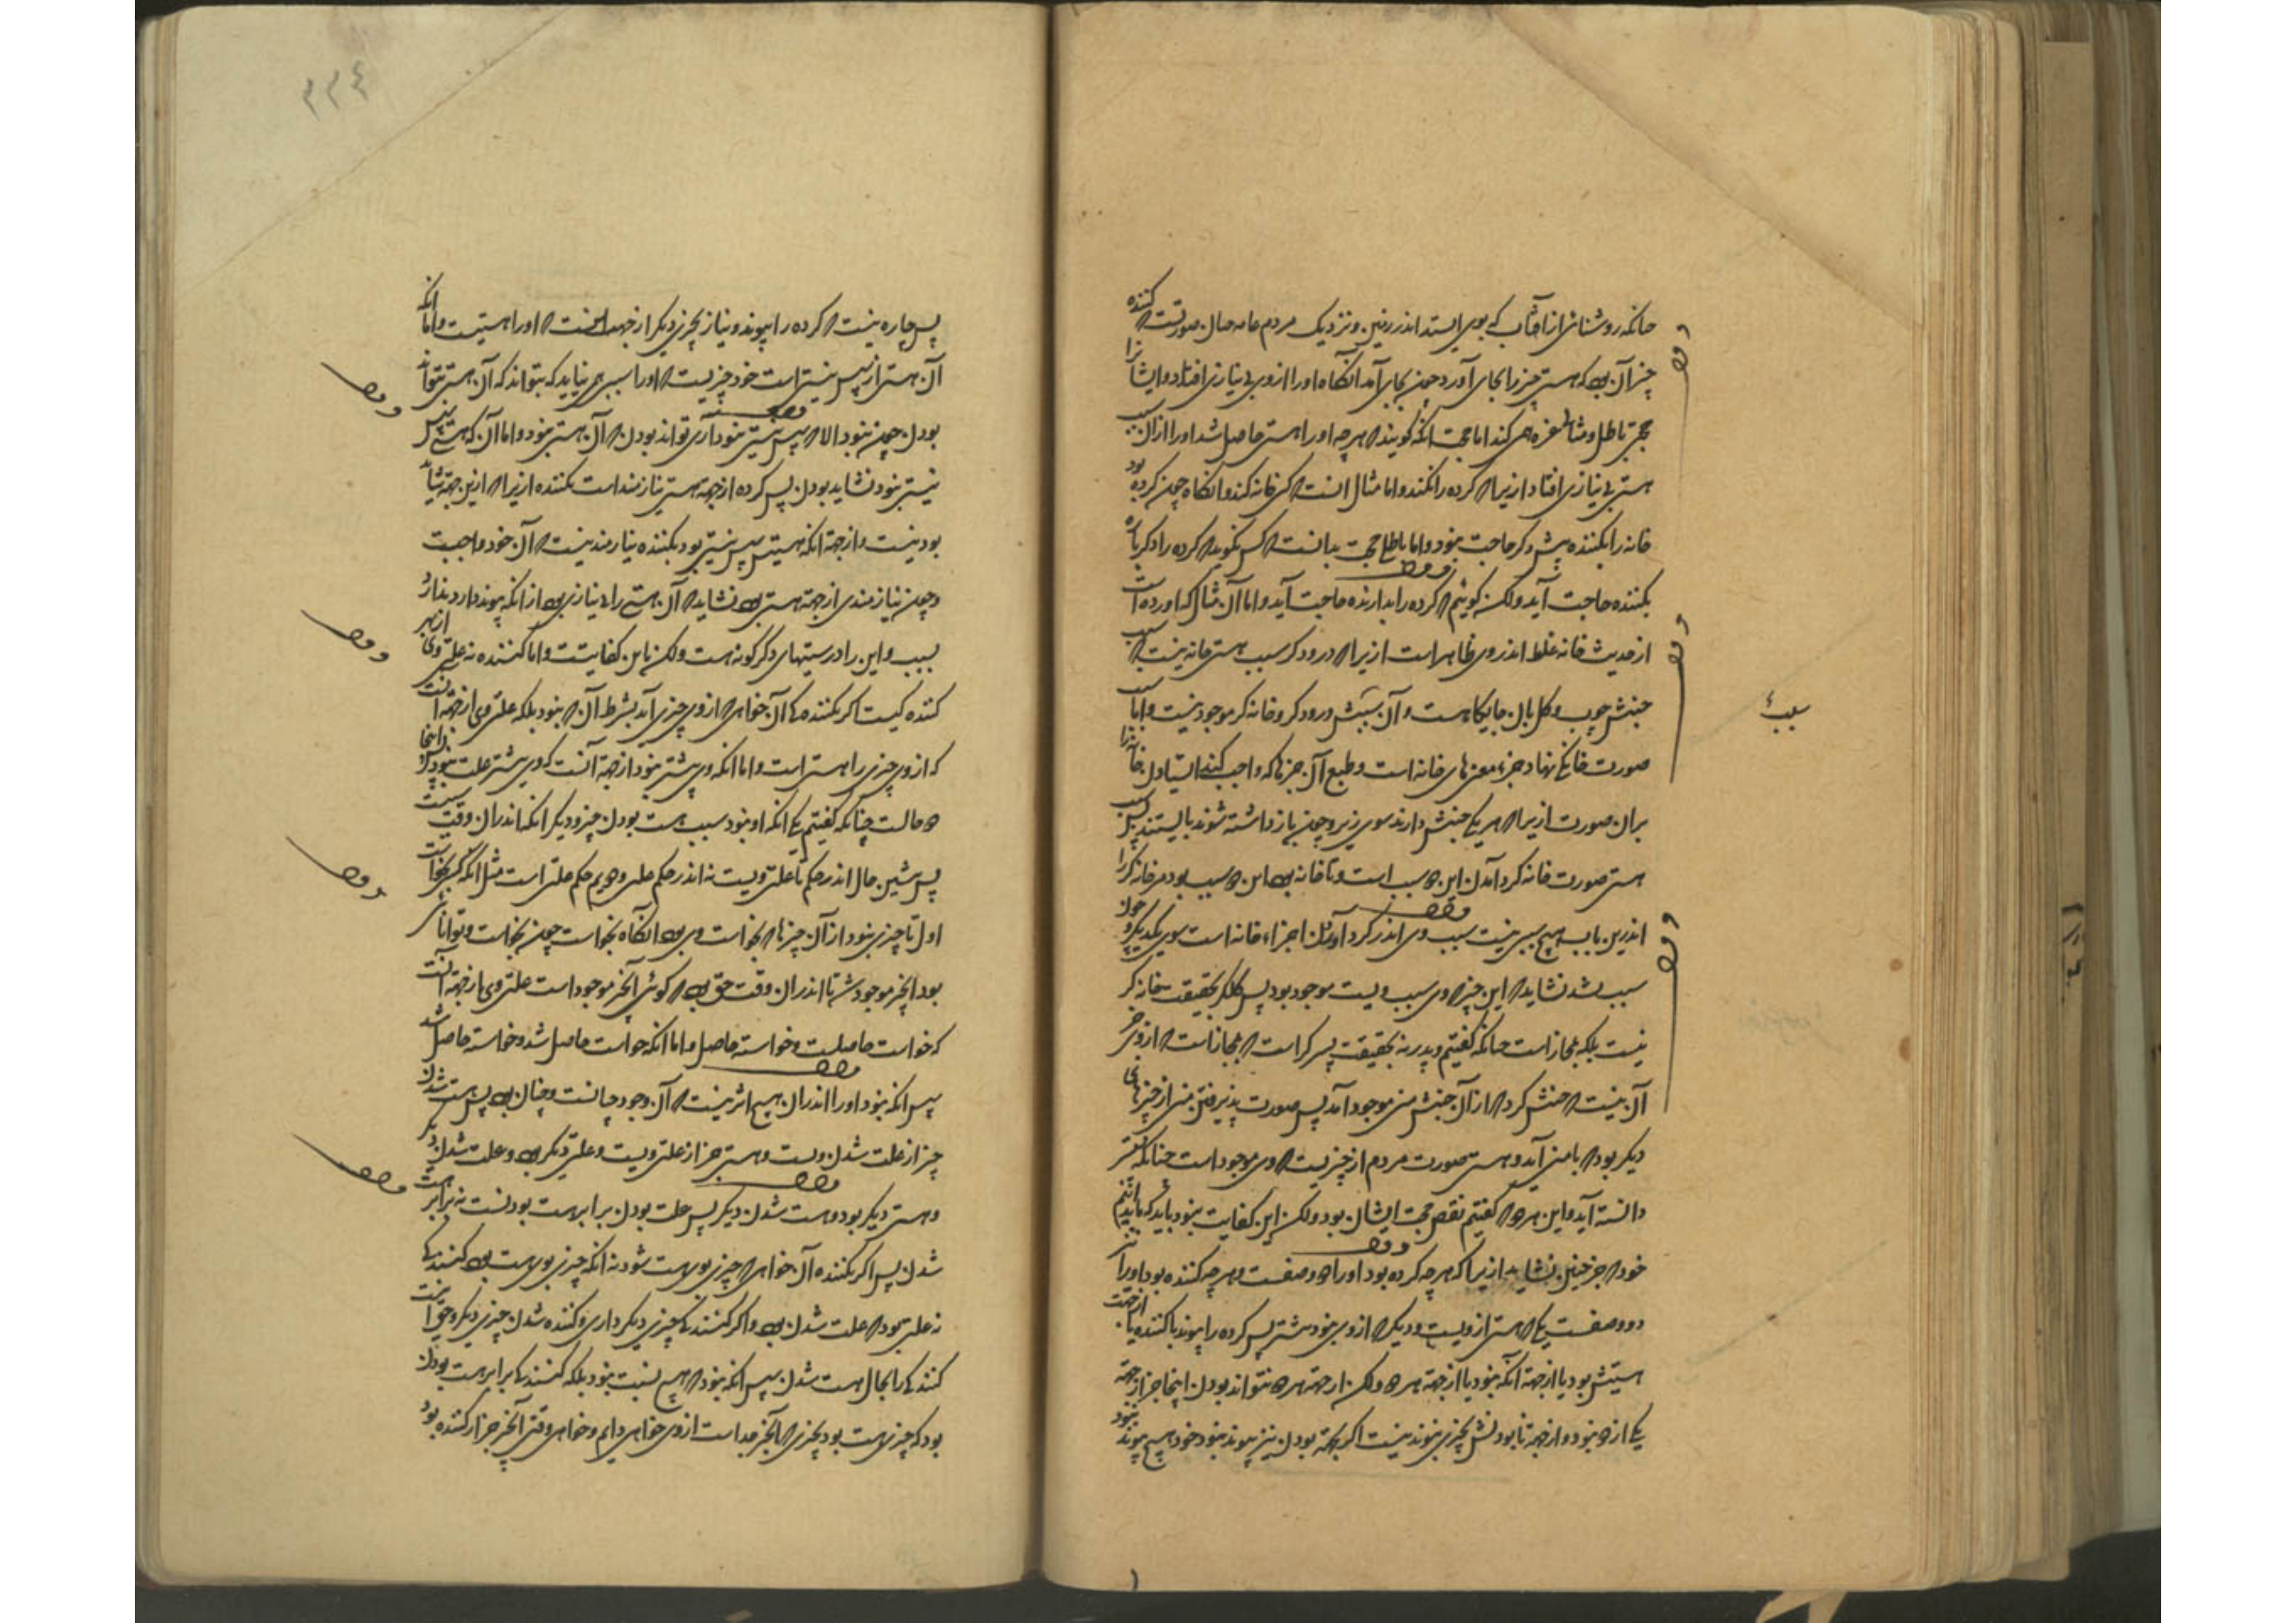 چنانکه روشنائی از آفتاب که بوی ایستد اندر زمین و نزدیک مردم عامه چنان صورتست که کننده
چیز آن بود که هستی چیز را بجای آورد چون بجای آمد آنگاه او را از وی بی نیازی افتاد و ایشانرا
حجتی باطل و مثالی غره همی کند اما حجت آنکه گویند که هرچه او را هستی حاصل شد او را از آن سبب
هستی بی نیازی افتاد ازیرا که کرده را نکنند و اما مثال آنست که کسی خانه کند و آنگاه چون کرده بود
خانه را بکننده بیش دگر حاجت نبود و اما باطلی حجت بدانست که کس نگوید که کرده را دگر باره
بکننده حاجت آید ولکن گوئیم که کرده را بدارنده حاجت آید و اما آن مثال که آورده است
از حدیث خانه غلط اندر وی ظاهر است ازیرا که درودگر سبب هستی خانه نیست که سبب
جنبش چوب و گل بآن جایگاهست و آن سپس درودگر و خانه گر موجود نیست و اما سبب
صورت خانگی نهاد جزوهای خانه است و طبع آن جزها که واجب کند ایستادن خانه را
بران صورت ازیرا که هر یکی جنبش دارند سوی زیر و چون باز داشته شوند بایستند پس سبب
هستی صورت خانه گرد آمدن این دو سبب است و تا خانه بود این دو سبب بود مر خانه گر را
اندرین باب هیچ سببی نیست سببی وی اندر گرد آوردن اجزاء خانه است سوی یکدیگر و چون
سبب بشد نشاید که این چیز که وی سبب ویست موجود بود پس گلگر بحقیقت خانه گر
نیست بلکه بمجاز است چنانکه گفتیم و پدر نه بحقیقت پسر گر است که بمجاز است که از وی جز
آن نیست که جنبشی کرد که از آن جنبش منی موجود آمد پس صورت پذیرفتن منی از چیزهای
دیگر بود که با منی آید و هستی صورت مردم از چیزیست که وی موجود است چنانکه سپستر
دانسته آید و این هر دو که گفتیم نقص حجت ایشان بود ولکن این کفایت نبود باید که بدانیم
خود که جز چنین نشاید ازیرا که هرچه کرده بود او را دو صفت و هرچه کننده بود او را نیز
دو صفت یکی که هستی از ویست و دیگر که از وی نبود پیشتر پس کرده را پیوند با کننده یا از جهت
هستیش بود یا از جهت آنکه نبود یا از جهت هر دو ولکن از جهت هر دو نتواند بودن اینجا جز از جهت
یکی از دو نبود و از جهت نابودنش بچیزی پیوند نیست اگر بجهت بودن نیز پیوند نبود خود هیچ پیوند نبود
سبب
۲۲٤
پس چاره نیست که کرده را پیوند و نیاز بچیزی دیگر از جهت آنست که او را هستیست و اما آنکه
آن هستی از پس نیستی است خود چیزیست که او را سببی همی نباید که نتواند که آن هستی نتواند
بودن چون نبود الا که سپس نیستی نبود آری تواند بودن که آن هستی نبود و اما آن که هستی سپس
نیستی نبود نشاید بودن پس کرده از جهت هستی نیازمند است بکننده ازیرا که ازین جهت شاید
بود نیست و از جهت آنکه هستیش سپس نیستی بود بکننده نیازمند نیست که آن خود واجبست
و چون نیازمندی از جهت هستی بود نشاید که آن هستی را بی نیازی بود از آنکه پیوند دارد بدان
سبب و این را درستیهای دگرگونه هست ولکن باین کفایتست و اما کننده نه علتی وی از بهر
کننده گیست اگر بکننده گی آن خواهی که از وی چیزی آید بشرط آن که نبود بلکه علتی وی از جهت آنست
که از وی چیزی را هستی است و اما آنکه وی پیشتر نبود از جهت آنست که وی پیشتر علت نبود و اینجا
دو حالست چنانکه گفتیم یکی آنکه او نبود سبب هست بودن چیز و دیگر آنکه اندران وقت سببست
پس پیشین حال اندر حکم ناعلتی ویست نه اندر حکم علتی و دویم حکم علتی است مثل آنکه کسی بخواست
اول تا چیزی نبود از آن چیزها که بخواست وی بود آنگاه بخواست چون بخواست و توانائی
بود آنچیز موجود شد تا اندران وقت حق بود که گوئی آنچیز موجود است علتی وی از جهت آنست
که خواست حاصلست و خواسته حاصل و اما آنکه خواست حاصل شد و خواسته حاصل شد
سپس آنکه نبود او را اندران هیچ اثر نیست که آن وجود چنانست و چنان بود پس هست شدن
چیز از علت شدن ویست و هستی چیز از علتی ویست و علتی دیگر بود و علت شدن دیگر
و هستی دیگر بود و هست شدن دیگر پس علت بودن برابر هست بودنست نه برابر هست
شدن پس اگر بکننده آن خواهی که چیزی بوی هست شود نه آنکه چیزی بوی هست بود کنندگی
نه علتی بود که علت شدن بود و اگر کنندگی چیزی دیگر داری و کننده شدن چیزی دیگر و حق اینست
کنندگی را بحال هست شدن سپس آنکه نبود هیچ نسبت نبود بلکه کنندگی برابر هست بودن
بود که چیزی هست بود بچیزی که آنچیز جداست از وی خواهی دایم و خواهی وقتی آنچیز جز از کننده بود